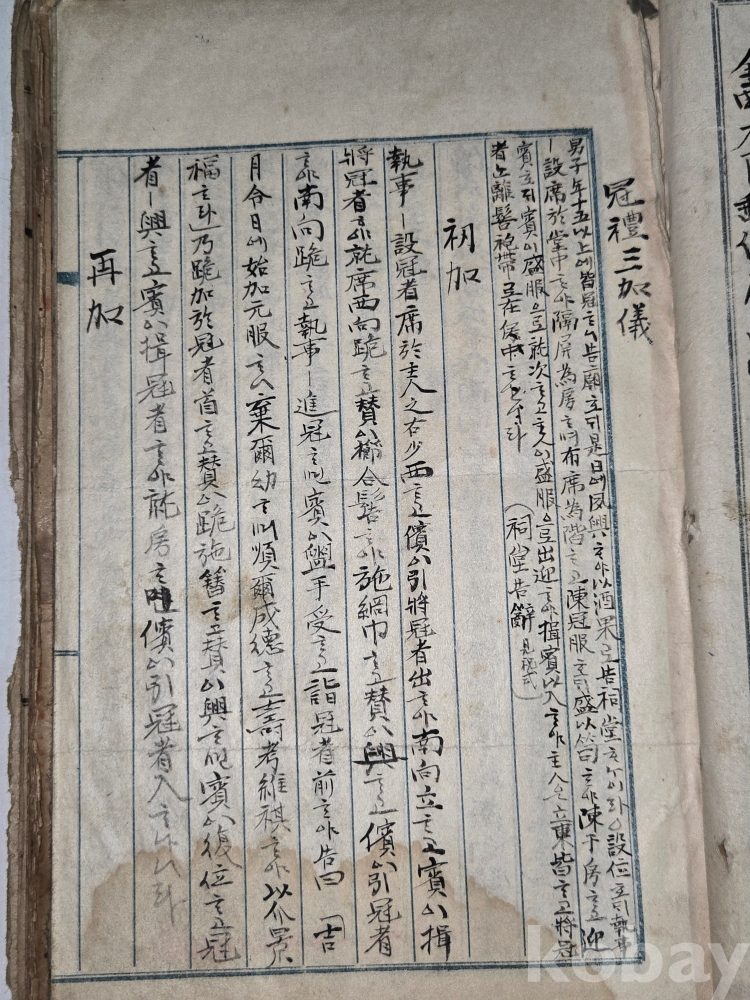 冠禮三加儀
男子年十五以上에皆冠ᄒᆞ니告廟ᄒᆞ고是日에夙興ᄒᆞ야以酒果로告祠堂 設位ᄒᆞ고執事
ㅣ設席於堂中ᄒᆞ야隔屏為房ᄒᆞ며布席為階ᄒᆞ고陳冠服 盛以笥ᄒᆞ야陳于房ᄒᆞ고迎
賓 賓이盛服으로就次ᄒᆞ고主人이盛服으로出迎ᄒᆞ야揖賓以入ᄒᆞ야主人은立東階ᄒᆞ고將冠
者는雖髻袍帶로在房中ᄒᆞ 祠堂告辭
初加
執事ㅣ設冠者席於主人之右少西ᄒᆞ고儐이引將冠者出ᄒᆞ야南向立ᄒᆞ고賓이揖
將冠者ᄒᆞ야就席西向跪ᄒᆞ고贊이櫛合髻ᄒᆞ야施網巾ᄒᆞ고贊이興ᄒᆞ고儐이引冠者
ᄒᆞ야南向跪ᄒᆞ고執事ㅣ進冠ᄒᆞ면賓이盥手受ᄒᆞ고詣冠者前ᄒᆞ야告曰「吉
月令日에始加元服ᄒᆞ니棄爾幼ᄒᆞ며順爾成德ᄒᆞ고壽考維祺ᄒᆞ야以介景
福ᄒᆞ라」乃跪加於冠者首ᄒᆞ고贊이跪施簪ᄒᆞ고贊이興ᄒᆞ면賓이復位ᄒᆞ고冠
者ㅣ興ᄒᆞ고賓이揖冠者ᄒᆞ야就房ᄒᆞ면儐이引冠者入ᄒᆞ나니라
再加
kobay